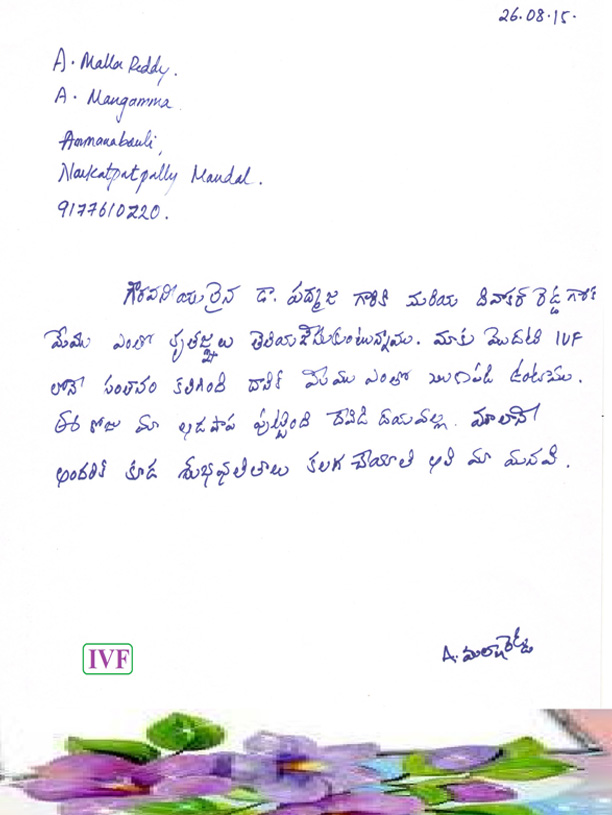 26.08.15.
A. Malla Reddy.
A. Mangamma
Ammanabouli,
Narkatpatpally Mandal.
9177610220.
గౌరవనీయులైన డా. పద్మజ గారికి మరియు దివాకర్ రెడ్డి గారికి
మేము ఎంతో కృతజ్ఞలు తెలియజేసుకుంటున్నాము. మాకు మొదటి IVF
లోనే సంతానం కలిగింది దానికి మేము ఎంతో ఋణపడి ఉంటాము.
ఈ రోజు మా ఆడపాప పుట్టింది దేవుడి దయవల్ల. మాలానే
అందరికి కూడ శుభఫలితాలు కలగ చేయాలి అని మా మనవి.
IVF
A. మల్లారెడ్డి